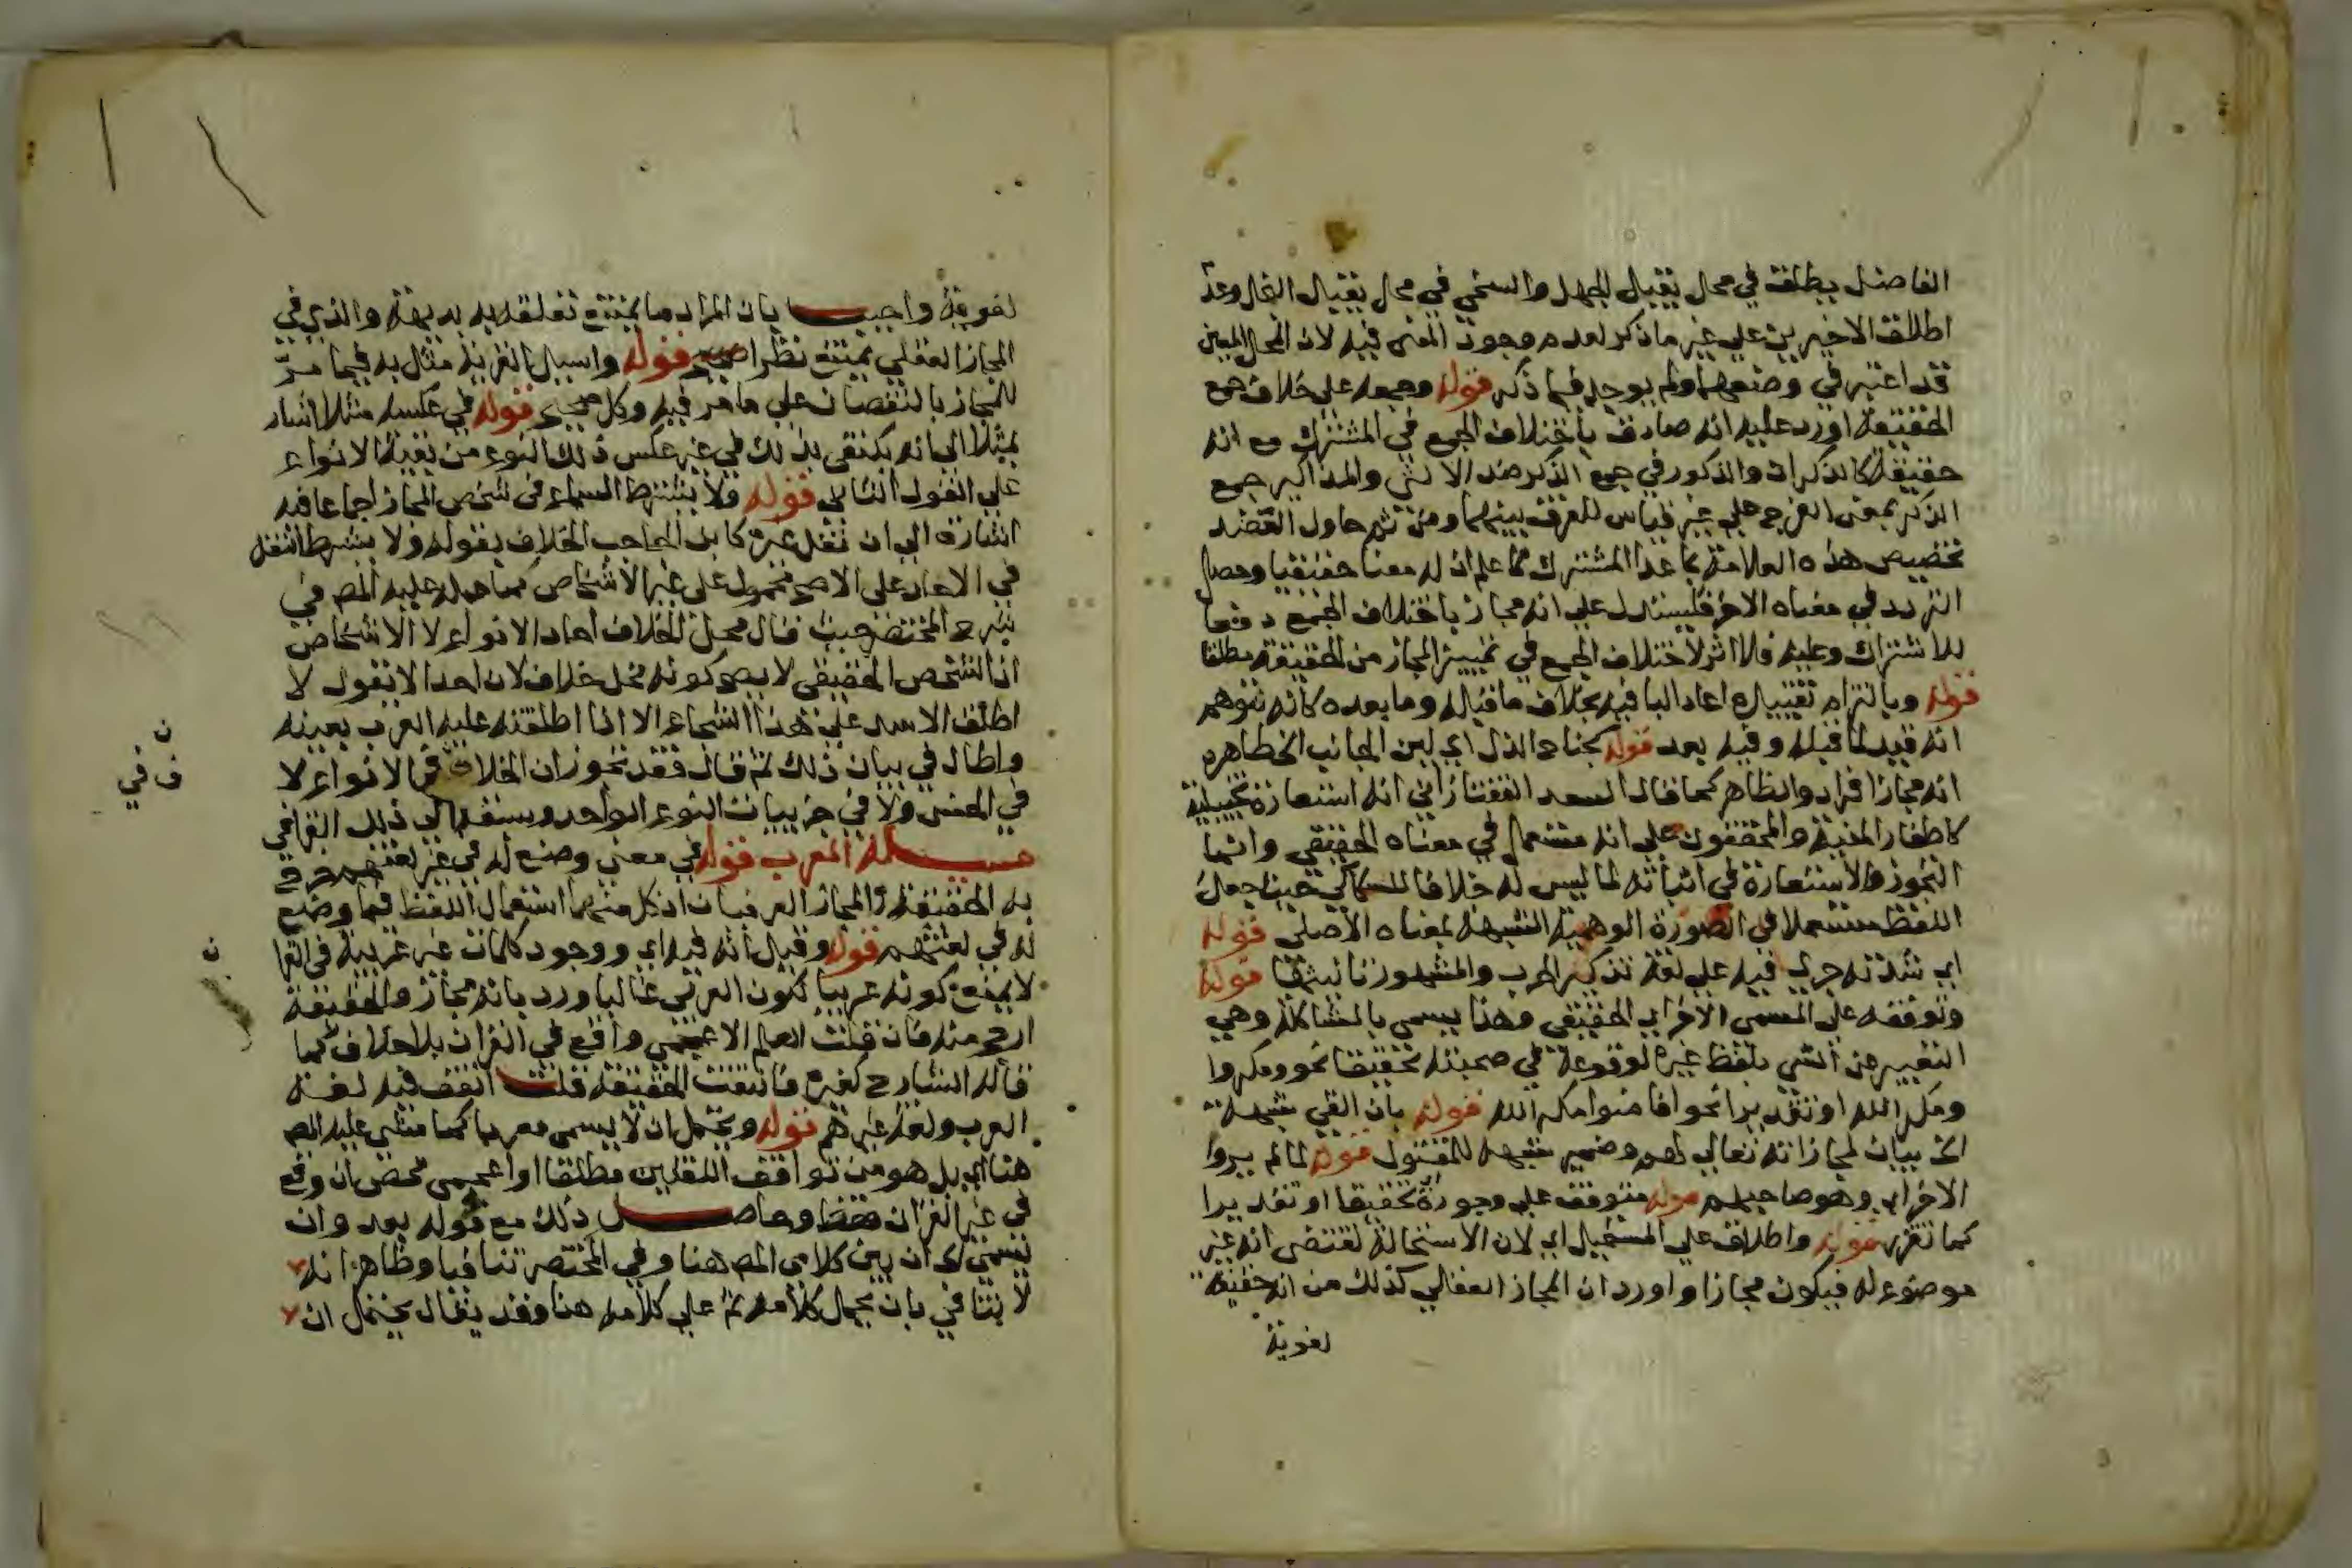 الفاضل يطلق في محل يقبل الجهل والسخي في محل يقبل البخل وعدم
اطلاق الاخيرين على غير ما ذكر لعدم وجود المعنى فيه لان المحل المعين
قد اعتبر في وضعهما ولم يوجد فيما ذكر قوله وجمعه على خلاف جمع
الحقيقة اورد عليه انه صادق باختلاف الجمع في المشترك مع انه
حقيقة كالذكران والذكور في جمع الذكر ضد الانثى والمذاكير جمع
الذكر بمعنى الفرج على غير قياس للفرق بينهما ومن ثم حاول العضد
تخصيص هذه العلامة بما عدا المشترك مما علم ان له معنا حقيقيا وحصل
التردد في معناه الاخر فليستدل على انه مجاز باختلاف الجمع دفعا
للاشتراك وعليه فلا اثر لاختلاف الجمع في تمييز المجاز من الحقيقة مطلقا
قوله وبالتزام تقييده اعاد البا فيه بخلاف ما قبله وما بعده كانه لتوهم
انه قيد لما قبله وفيه بعد قوله كجناح الذل اي لين الجانب الخ ظاهره
انه مجاز افراد والظاهر كما قال السعد التفتازاني انه استعارة تخييلية
كاظفار المنية والمحققون على انه مستعمل في معناه الحقيقي وانما
التجوز والاستعارة في اثباته لما ليس له خلافا للسكاكي حيث جعل
اللفظ مستعملا في الصورة الوهمية الشبيهة بمعناه الاصلي قوله
اي شدته جرى فيه على لغة تذكير الحرب والمشهور تانيثها قوله
وتوقفه على المسمى الاخر اي الحقيقي وهذا يسمى بالمشاكلة وهي
التعبير عن الشي بلفظ غيره لوقوعه في صحبته تحقيقا نحو ومكروا
ومكر الله او تقديرا نحو افامنوا مكر الله قوله بان القي شبهه
الخ بيان لمجازاته تعالى لهم وضمير شبهه للمقتول قوله لما لم يروا
الاخر اي وهو صاحبهم قوله متوقف على وجوده تحقيقا او تقديرا
كما تقرر قوله واطلاق على المستحيل اي لان الاستحالة تقتضي انه غير
موضوع له فيكون مجازا واورد ان المجاز العقلي كذلك مع انه حقيقة
لغوية
لغوية واجيب بان المراد ما يمتنع تعلقه به بديهة والذي في
المجاز العقلي يمتنع نظرا صح قوله واسيل القرية مثل به فيما مر
للمجاز بالنقصان على ما مر فيه وكل صحيح قوله في عكسه مثلا اشار
بمثلا الى انه يكتفى بذلك في غير عكس ذلك النوع من بقية الانواع
على القول الثاني قوله ولا يشترط السماع في شخص المجاز اجماعا فيه
اشارة الى ان نقل غيره كابن الحاجب الخلاف بقوله ولا يشترط النقل
في الاحاد على الاصح محمول على غير الاشخاص كما حمله عليه المص في
شرح المختصر حيث قال محل الخلاف احاد الانواع لا الاشخاص
اذ الشخص الحقيقي لا يصح كونه محل خلاف لان احدا لا يقول لا
اطلق الاسد على هذا الشجاع الا اذا اطلقته عليه العرب بعينه
واطال في بيان ذلك ثم قال فقد تحرر ان الخلاف في الانواع لا
في الجنس ولا في جزييات النوع الواحد وسبقه الى ذلك القرافي
مسئلة المعرب قوله في معنى وضع له في غير لغتهم خرج
به الحقيقة والمجاز العرفيان اذ كل منهما استعمال اللفظ فيما وضع
له في لغتهم قوله وقيل انه فيه اي ووجود كلمات غير عربية في القرا
ن لا يمنع كونه عربيا لكون العربي غالبا ورد بانه مجاز والحقيقة
ارجح منه فان قلت العلم الاعجمي واقع في القران بلا خلاف كما
قاله الشارح كغيره فانتفت الحقيقة قلت اتفق فيه لغة
العرب ولغة غيرهم قوله ويحتمل ان لا يسمى معربا كما مشى عليه المص
هنا اي بل هو من توافق اللغتين مطلقا او اعجمي محض ان وقع
في غير القران فقط وحاصل ذلك مع قوله بعد وان
يسمى اي ان بين كلامي المص هنا وفي المختصر تنافيا وظاهر انه
لا تنافي بان يحمل كلامه ثم على كلامه هنا وقد يقال يحتمل ان
ن
ف في
ن